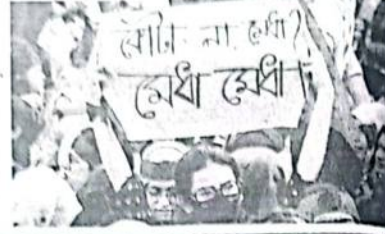 কোটা না মেধা?
মেধা মেধা।